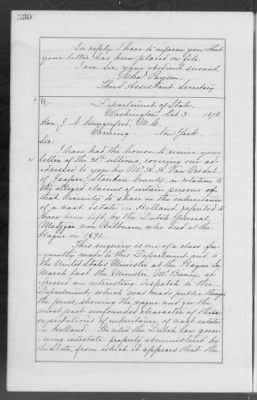 530
In reply I have to inform you that
your letter has been placed on file.
I am, Sir, your obedient servant,
Chas. Payson,
Third Assistant Secretary.
Department of State,
Washington Oct. 3 1878.
Hon. J. N. Hungerford, M. C.
Corning, New York.
Sir:
I have had the honor to receive your
letter of the ultimo, covering one ad-
dressed to you by Mr. A. A. Van
of Jasper, Steuben County, in relation to
the alleged claims of certain persons of
that County to share in the inheritance
of a vast estate in Holland, reputed to
have been left by the Dutch General,
Metzger von Weibnom, who died at the
Hague in 1691.
This inquiry is one of a class fre-
quently made to this Department and to
the United States Minister at the Hague. In
March last the Minister, Mr. Birney, ad-
dressed an interesting dispatch to this
Department, which was made public through
the press, showing the vague and for the
most part unfounded character of these
expectations of inheritance, of vast estates
in Holland. He cites the Dutch law gover-
ning intestate property administered by
the State, from which it appears that the